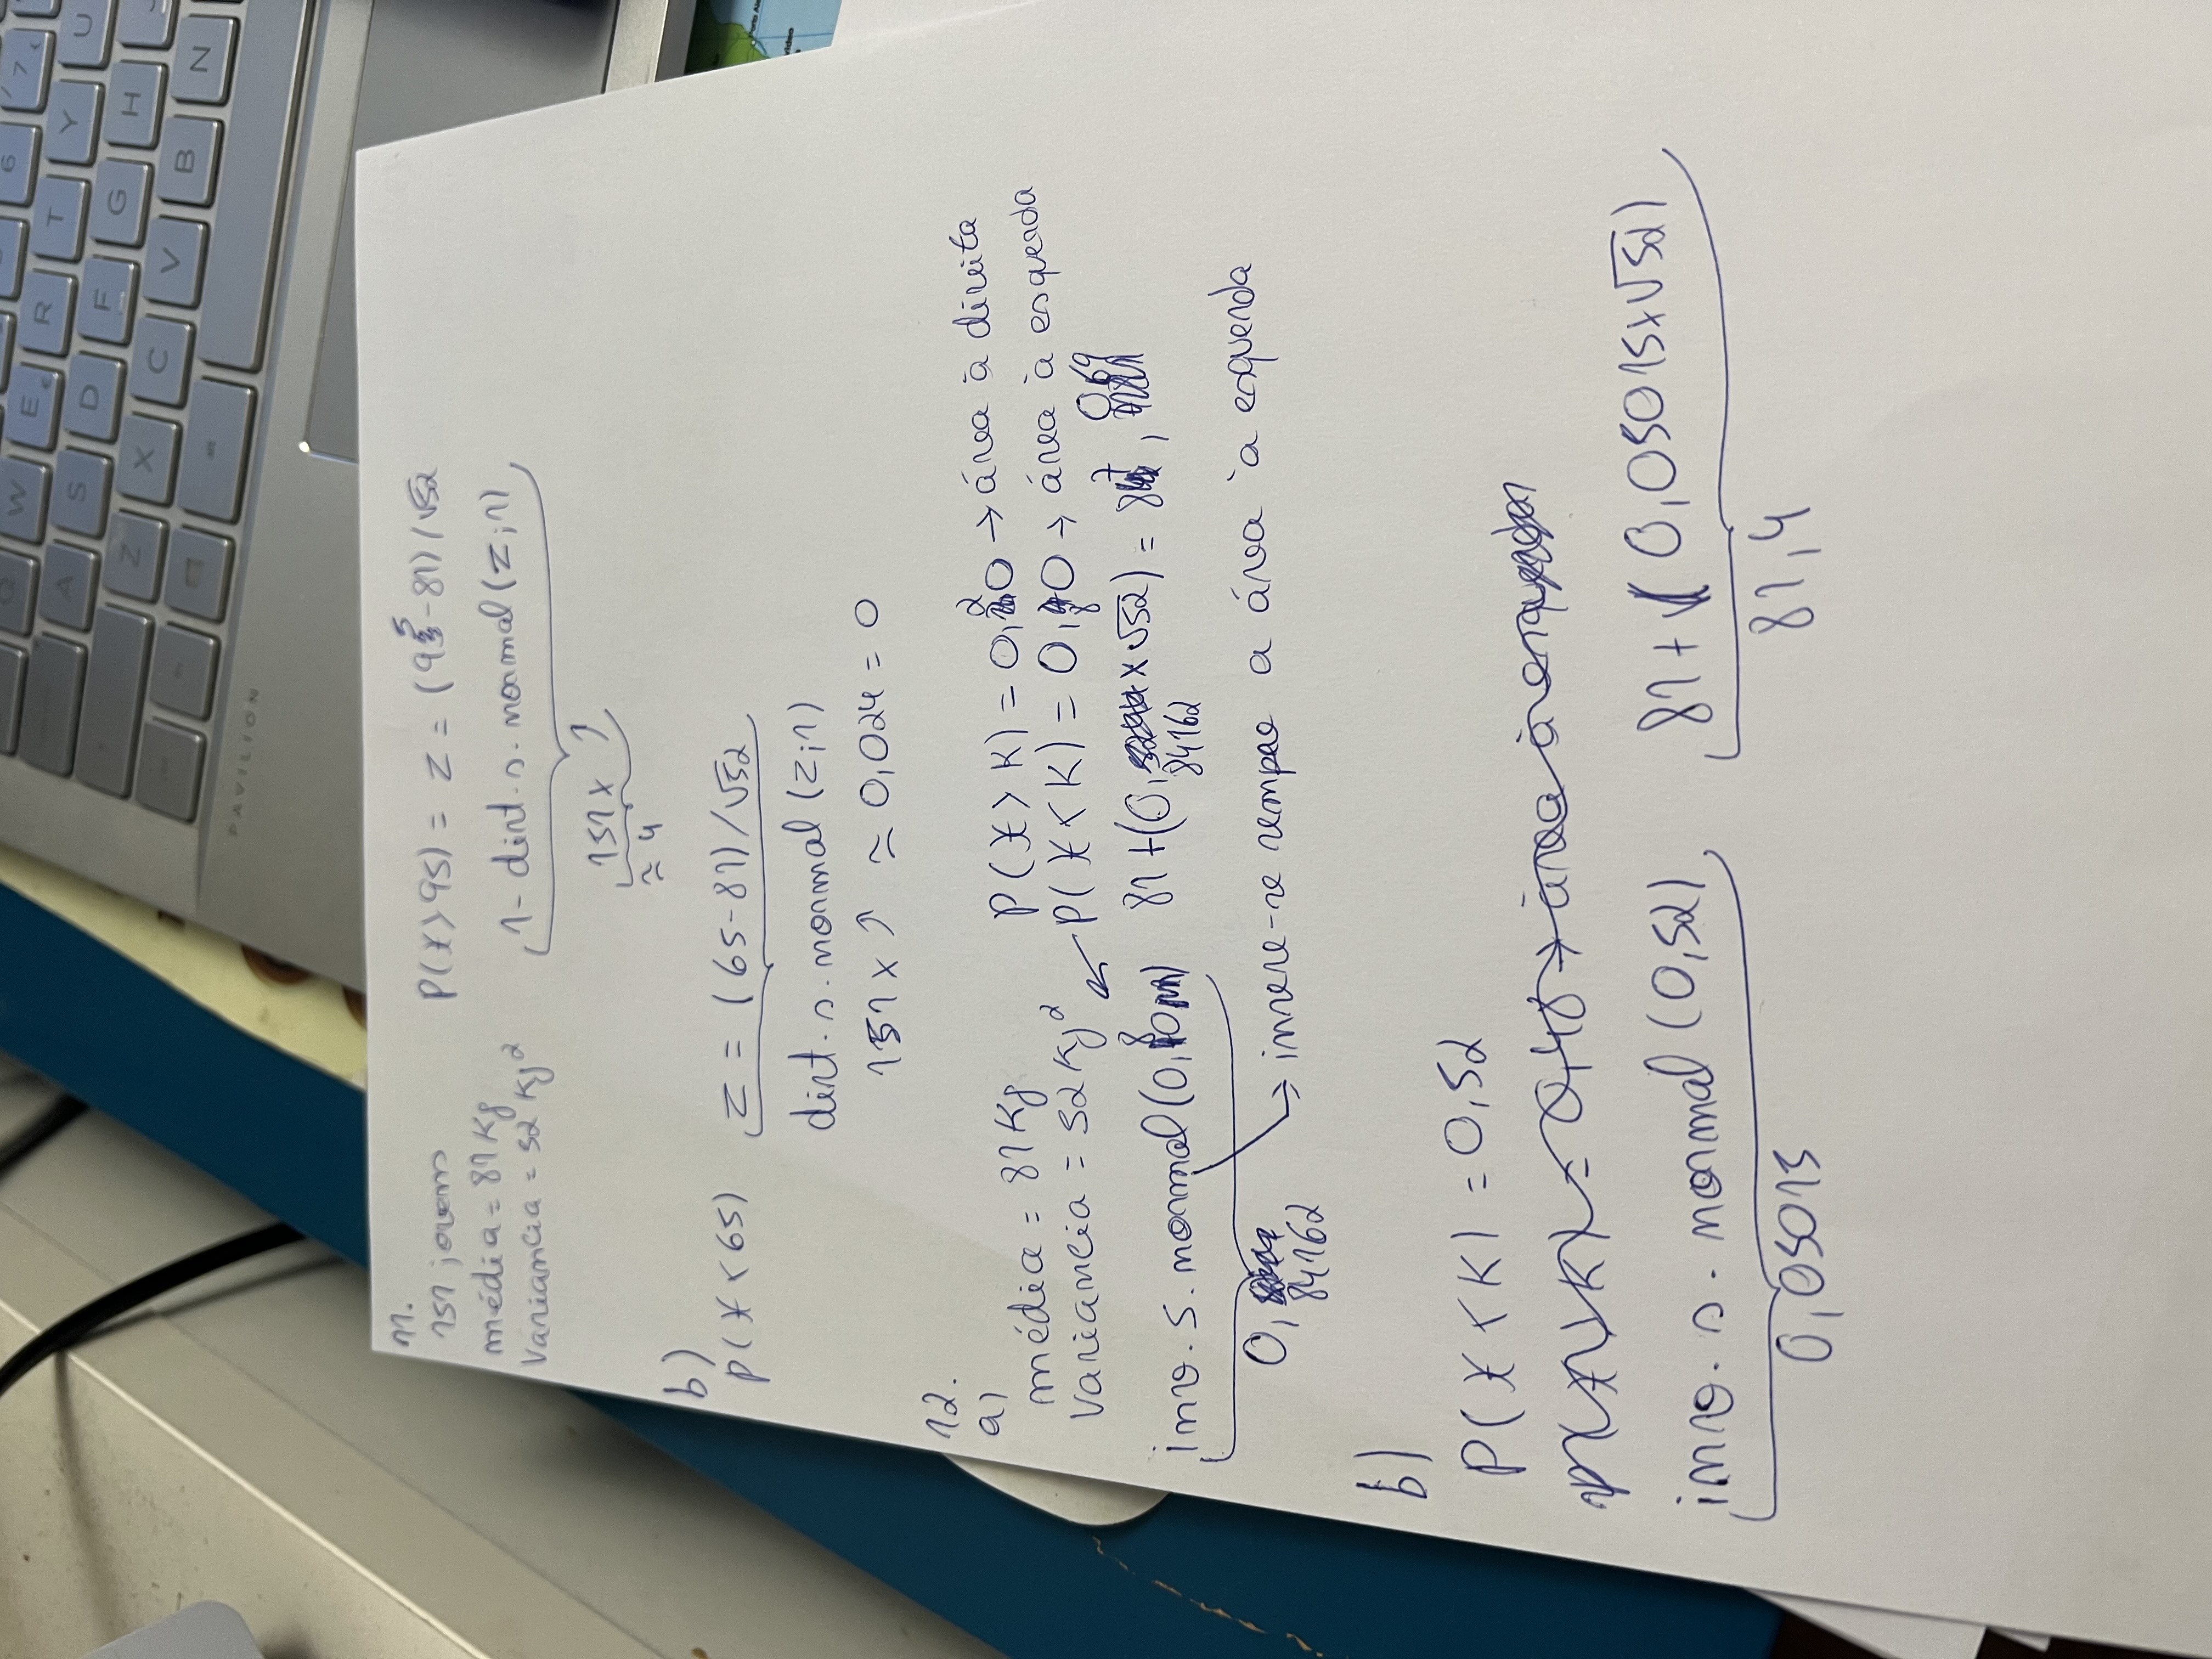 6 7
Q W E € R T Y U
A S D F G H J
Z X C V B N
alt
PAVILION
11.
151 jovens
média = 81 Kg
Variancia = 52 Kg²
P(X > 95) = Z = (95 - 81) / √52
1 - dist. s. normal (Z; 1)
151 x ↑
≃ 4
b)
P(X < 65) Z = (65 - 81) / √52
dist. s. normal (Z; 1)
151 x ↑ ≃ 0,024 = 0
12.
a)
média = 81 Kg
Variancia = 52 Kg²
P(X > K) = 0,20 → área à direita
P(X < K) = 0,80 → área à esquerda
inv. s. normal (0,80)
0,84162
81 + (0,84162 x √52) = 87,069
→ insere-se sempre a área à esquerda
b)
P(X < K) = 0,52
P(X > K) = 0,48 → área à esquerda
inv. s. normal (0,52)
0,05015
81 + (0,05015 x √52)
81,4